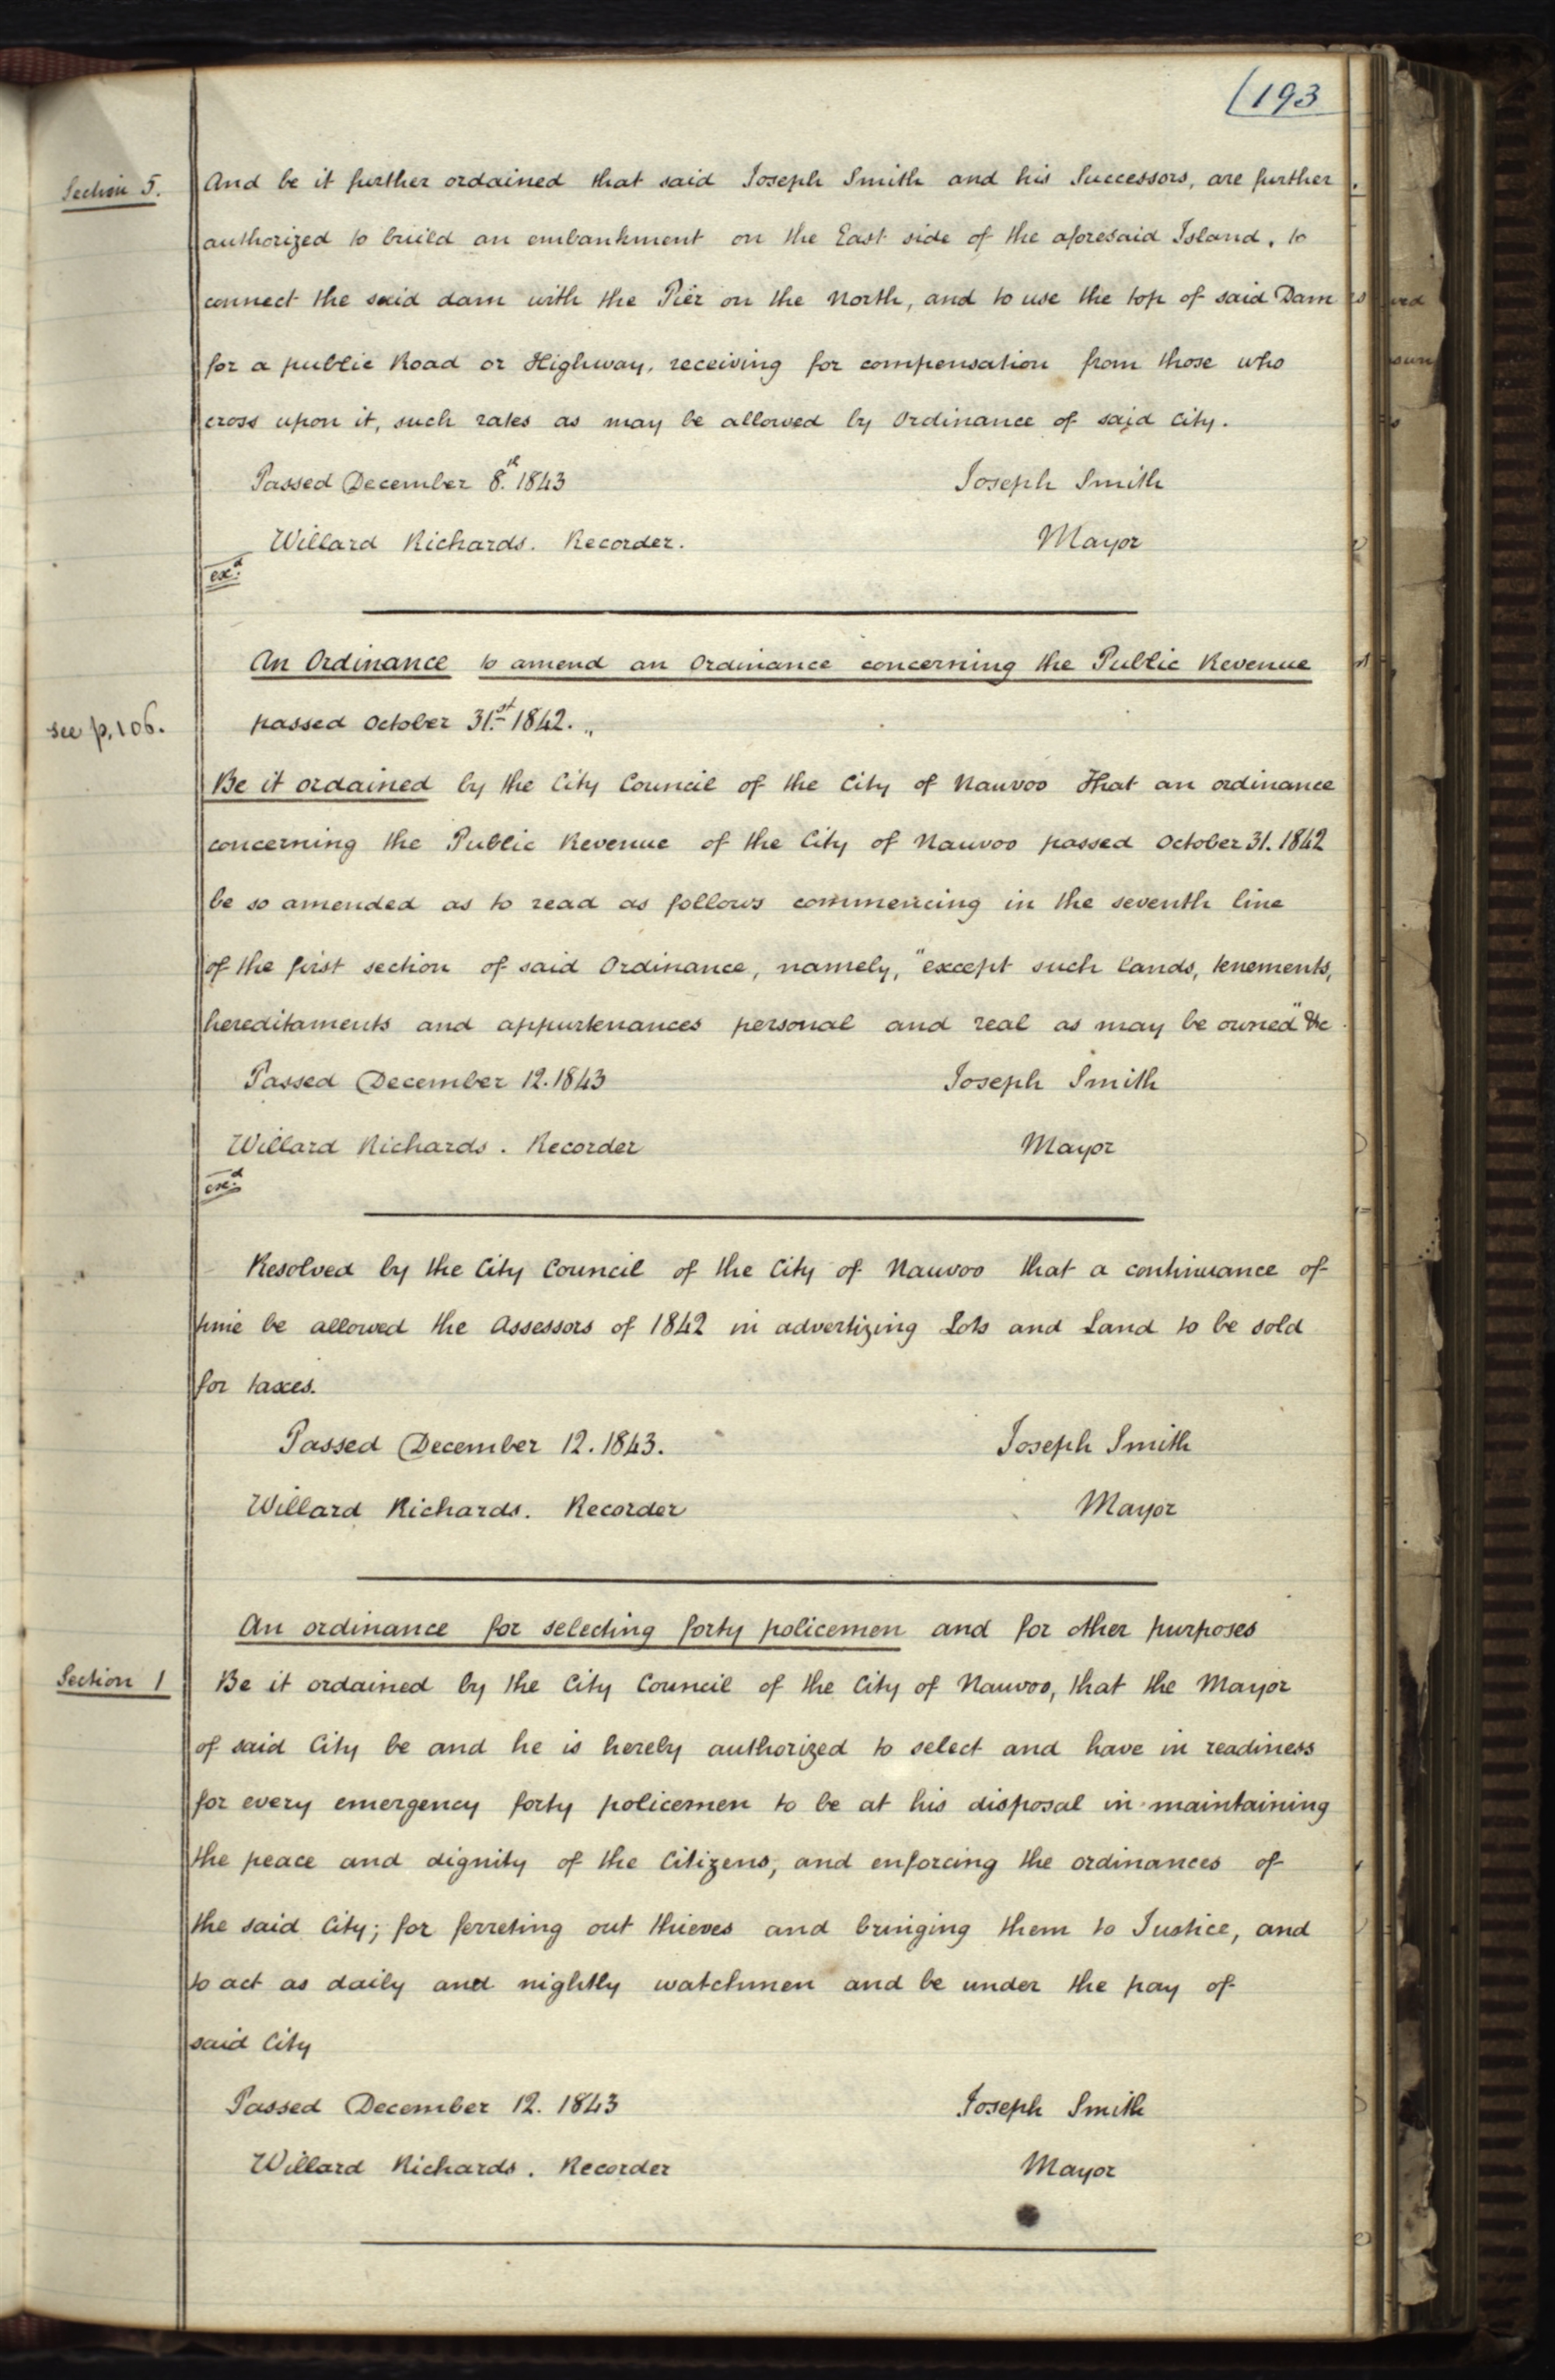 (193
Section 5. And be it further ordained that said Joseph Smith and his Successors, are further
authorized to build an embankment on the East side of the aforesaid Island, to
connect the said dam with the Pier on the North, and to use the top of said Dam
for a public Road or Highway, receiving for compensation from those who
cross upon it, such rates as may be allowed by Ordinance of said City.
Passed December 8.th 1843 Joseph Smith
Willard Richards. Recorder. Mayor
ex.d
An Ordinance to amend an Ordinance concerning the Public Revenue
see p. 106. passed October 31.st 1842.
Be it ordained by the City Council of the City of Nauvoo That an ordinance
concerning the Public Revenue of the City of Nauvoo passed October 31. 1842
be so amended as to read as follows commencing in the seventh line
of the first section of said Ordinance, namely, "except such lands, tenements,
hereditaments and appurtenances personal and real as may be owned" &c.
Passed December 12. 1843 Joseph Smith
Willard Richards. Recorder Mayor
ex.d
Resolved by the City Council of the City of Nauvoo that a continuance of
time be allowed the Assessors of 1842 in advertizing Lots and Land to be sold
for taxes.
Passed December 12. 1843. Joseph Smith
Willard Richards. Recorder Mayor
An ordinance for selecting forty policemen and for other purposes
Section 1 Be it ordained by the City Council of the City of Nauvoo, that the Mayor
of said City be and he is hereby authorized to select and have in readiness
for every emergency forty policemen to be at his disposal in maintaining
the peace and dignity of the Citizens, and enforcing the ordinances of
the said City; for ferreting out thieves and bringing them to Justice, and
to act as daily and nightly watchmen and be under the pay of
said City
Passed December 12. 1843 Joseph Smith
Willard Richards. Recorder Mayor